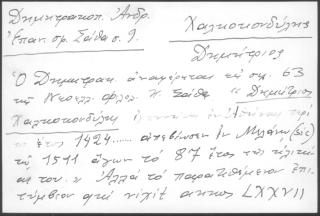 Δημητρακοπ. Ἀνδρ. Χαλκοκονδύλης
Ἐπαν. σρ. Σάθα σ. 9. Δημήτριος
Ὁ Δημητρακ. ἀναφέρεται εἰς σημ. 63
τῆς Νεοελλ. φιλολ. Κ. Σάθα "Δημήτριος
Χαλκοκονδύλης ἐν Ἀθήναις περὶ
τὸ ἔτος 1424...... ἀπεβίωσεν ἐν Μιλάνῳ (sic)
τῷ 1511 ἄγων τὸ 87 ἔτος τῆς ἡλικί-
ας του. " Ἀλλὰ τὸ παρατιθέμενον ἐπι-
τύμβιον φησὶ vixit annos LXXVII